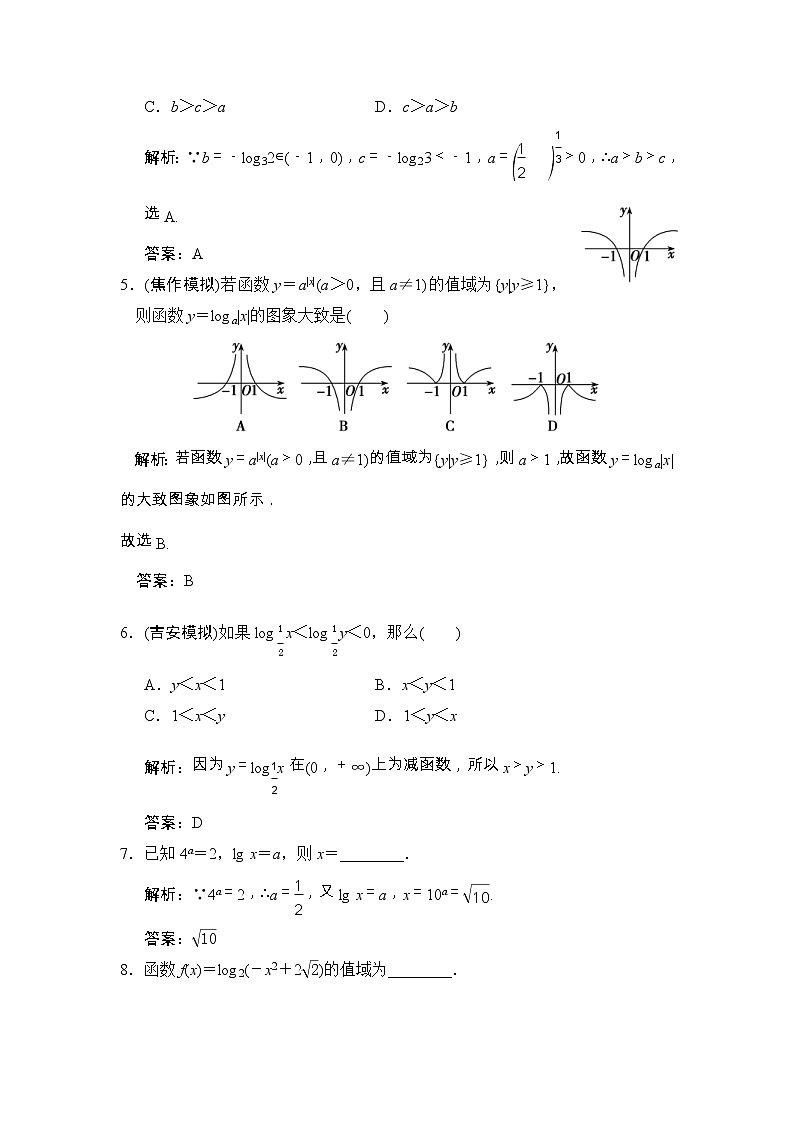 C．b＞c＞a　D．c＞a＞b
解析：∵b＝－log₃2∈(－1，0)，c＝－log₂3＜－1，a＝(1/2)^(1/3)＞0，∴a＞b＞c，
选 A.
y
－1 O 1 x
答案：A
5．(焦作模拟)若函数 y＝a^|x|(a＞0，且 a≠1)的值域为{y|y≥1}，
则函数 y＝logₐ|x|的图象大致是(　　)
y y y y
－1 O 1 x －1 O 1 x －1 O 1 x －1 O 1 x
A B C D
解析：若函数 y＝a^|x|(a＞0，且 a≠1)的值域为{y|y≥1}，则 a＞1，故函数 y＝logₐ|x|
的大致图象如图所示．
故选 B.
答案：B
6．(吉安模拟)如果 log_(1/2) x＜log_(1/2) y＜0，那么(　　)
A．y＜x＜1　B．x＜y＜1
C．1＜x＜y　D．1＜y＜x
解析：因为 y＝log_(1/2) x 在(0，＋∞)上为减函数，所以 x＞y＞1.
答案：D
7．已知 4^a＝2，lg x＝a，则 x＝________．
解析：∵4^a＝2，∴a＝1/2，又 lg x＝a，x＝10^a＝√10.
答案：√10
8．函数 f(x)＝log₂(－x²＋2√2)的值域为________．